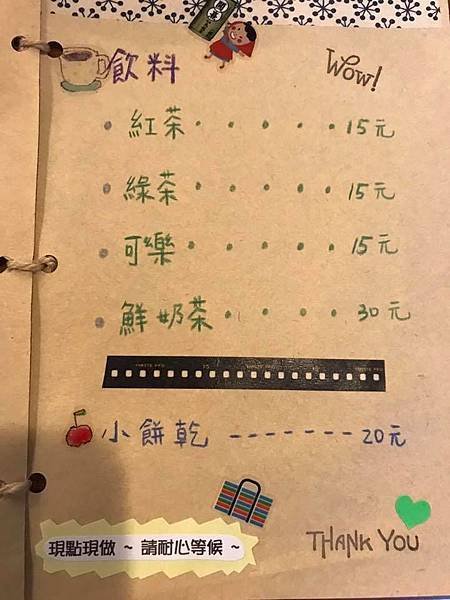 飲料 WOW!
紅茶 · · · · · 15元
綠茶 · · · · · 15元
可樂 · · · · · 15元
鮮奶茶 · · · · 30元
小餅乾 ------- 20元
現點現做 ~ 請耐心等候 ~
THANK YOU